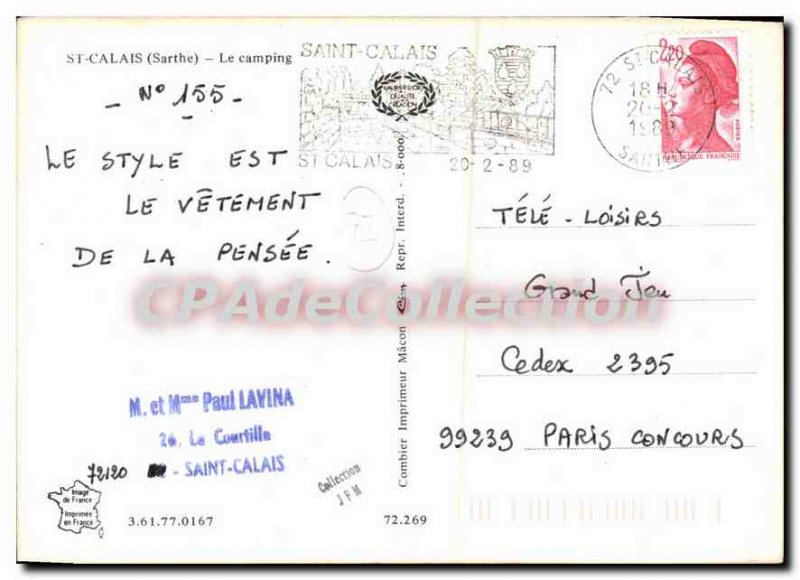 ST-CALAIS (Sarthe) – Le camping
- N° 155 -
LE STYLE EST
LE VÊTEMENT
DE LA PENSÉE.
SAINT-CALAIS
ST CALAIS 20-2-89
72 ST CALAIS
18H
20-2
1989
SARTHE
2,20
POSTES
REPUBLIQUE FRANÇAISE
72
TÉLÉ - LOISIRS
Grand Jeu
Cedex 2395
99239 PARIS CONCOURS
CPAdeCollection
M. et Mme Paul LAVINA
26, La Courtille
72120 - SAINT-CALAIS
Collection
J P M
Image
de France
Imprimée
en France
3.61.77.0167
72.269
Combier Imprimeur Mâcon Cim Repr. Interd.